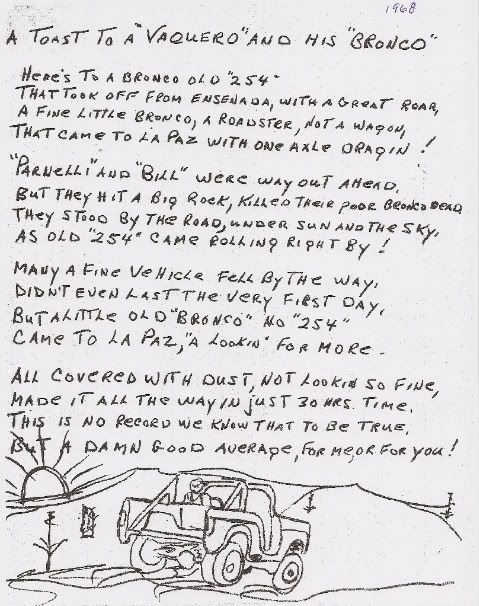 1968
A TOAST TO A "VAQUERO" AND HIS "BRONCO"
HERE'S TO A BRONCO OLD "254"
THAT TOOK OFF FROM ENSENADA, WITH A GREAT ROAR,
A FINE LITTLE BRONCO, A ROADSTER, NOT A WAGON,
THAT CAME TO LA PAZ WITH ONE AXLE DRAGIN !
"PARNELLI" AND "BILL" WERE WAY OUT AHEAD,
BUT THEY HIT A BIG ROCK, KILLED THEIR POOR BRONCO DEAD,
THEY STOOD BY THE ROAD, UNDER SUN AND THE SKY,
AS OLD "254" CAME ROLLING RIGHT BY !
MANY A FINE VEHICLE FELL BY THE WAY,
DIDN'T EVEN LAST THE VERY FIRST DAY,
BUT A LITTLE OLD "BRONCO" NO "254"
CAME TO LA PAZ, "A LOOKIN" FOR MORE.
ALL COVERED WITH DUST, NOT LOOKIN SO FINE,
MADE IT ALL THE WAY IN JUST 30 HRS. TIME.
THIS IS NO RECORD WE KNOW THAT TO BE TRUE,
BUT A DAMN GOOD AVERAGE, FOR ME, OR FOR YOU !